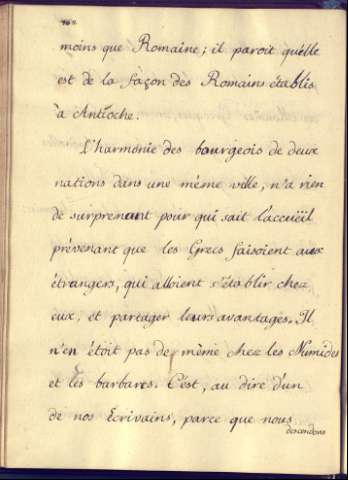 moins que Romaine; il paroit qu'elle
est de la façon des Romains établis
à Antioche.
L'harmonie des bourgeois de deux
nations dans une même ville, n'a rien
de surprenant pour qui sait l'accueil
prévenant que les Grecs faisoient aux
étrangers, qui alloient s'établir chez
eux, et partager leurs avantages. Il
n'en étoit pas de même chez les Numides
et les barbares. C'est, au dire d'un
de nos Ecrivains, parce que nous
descendons